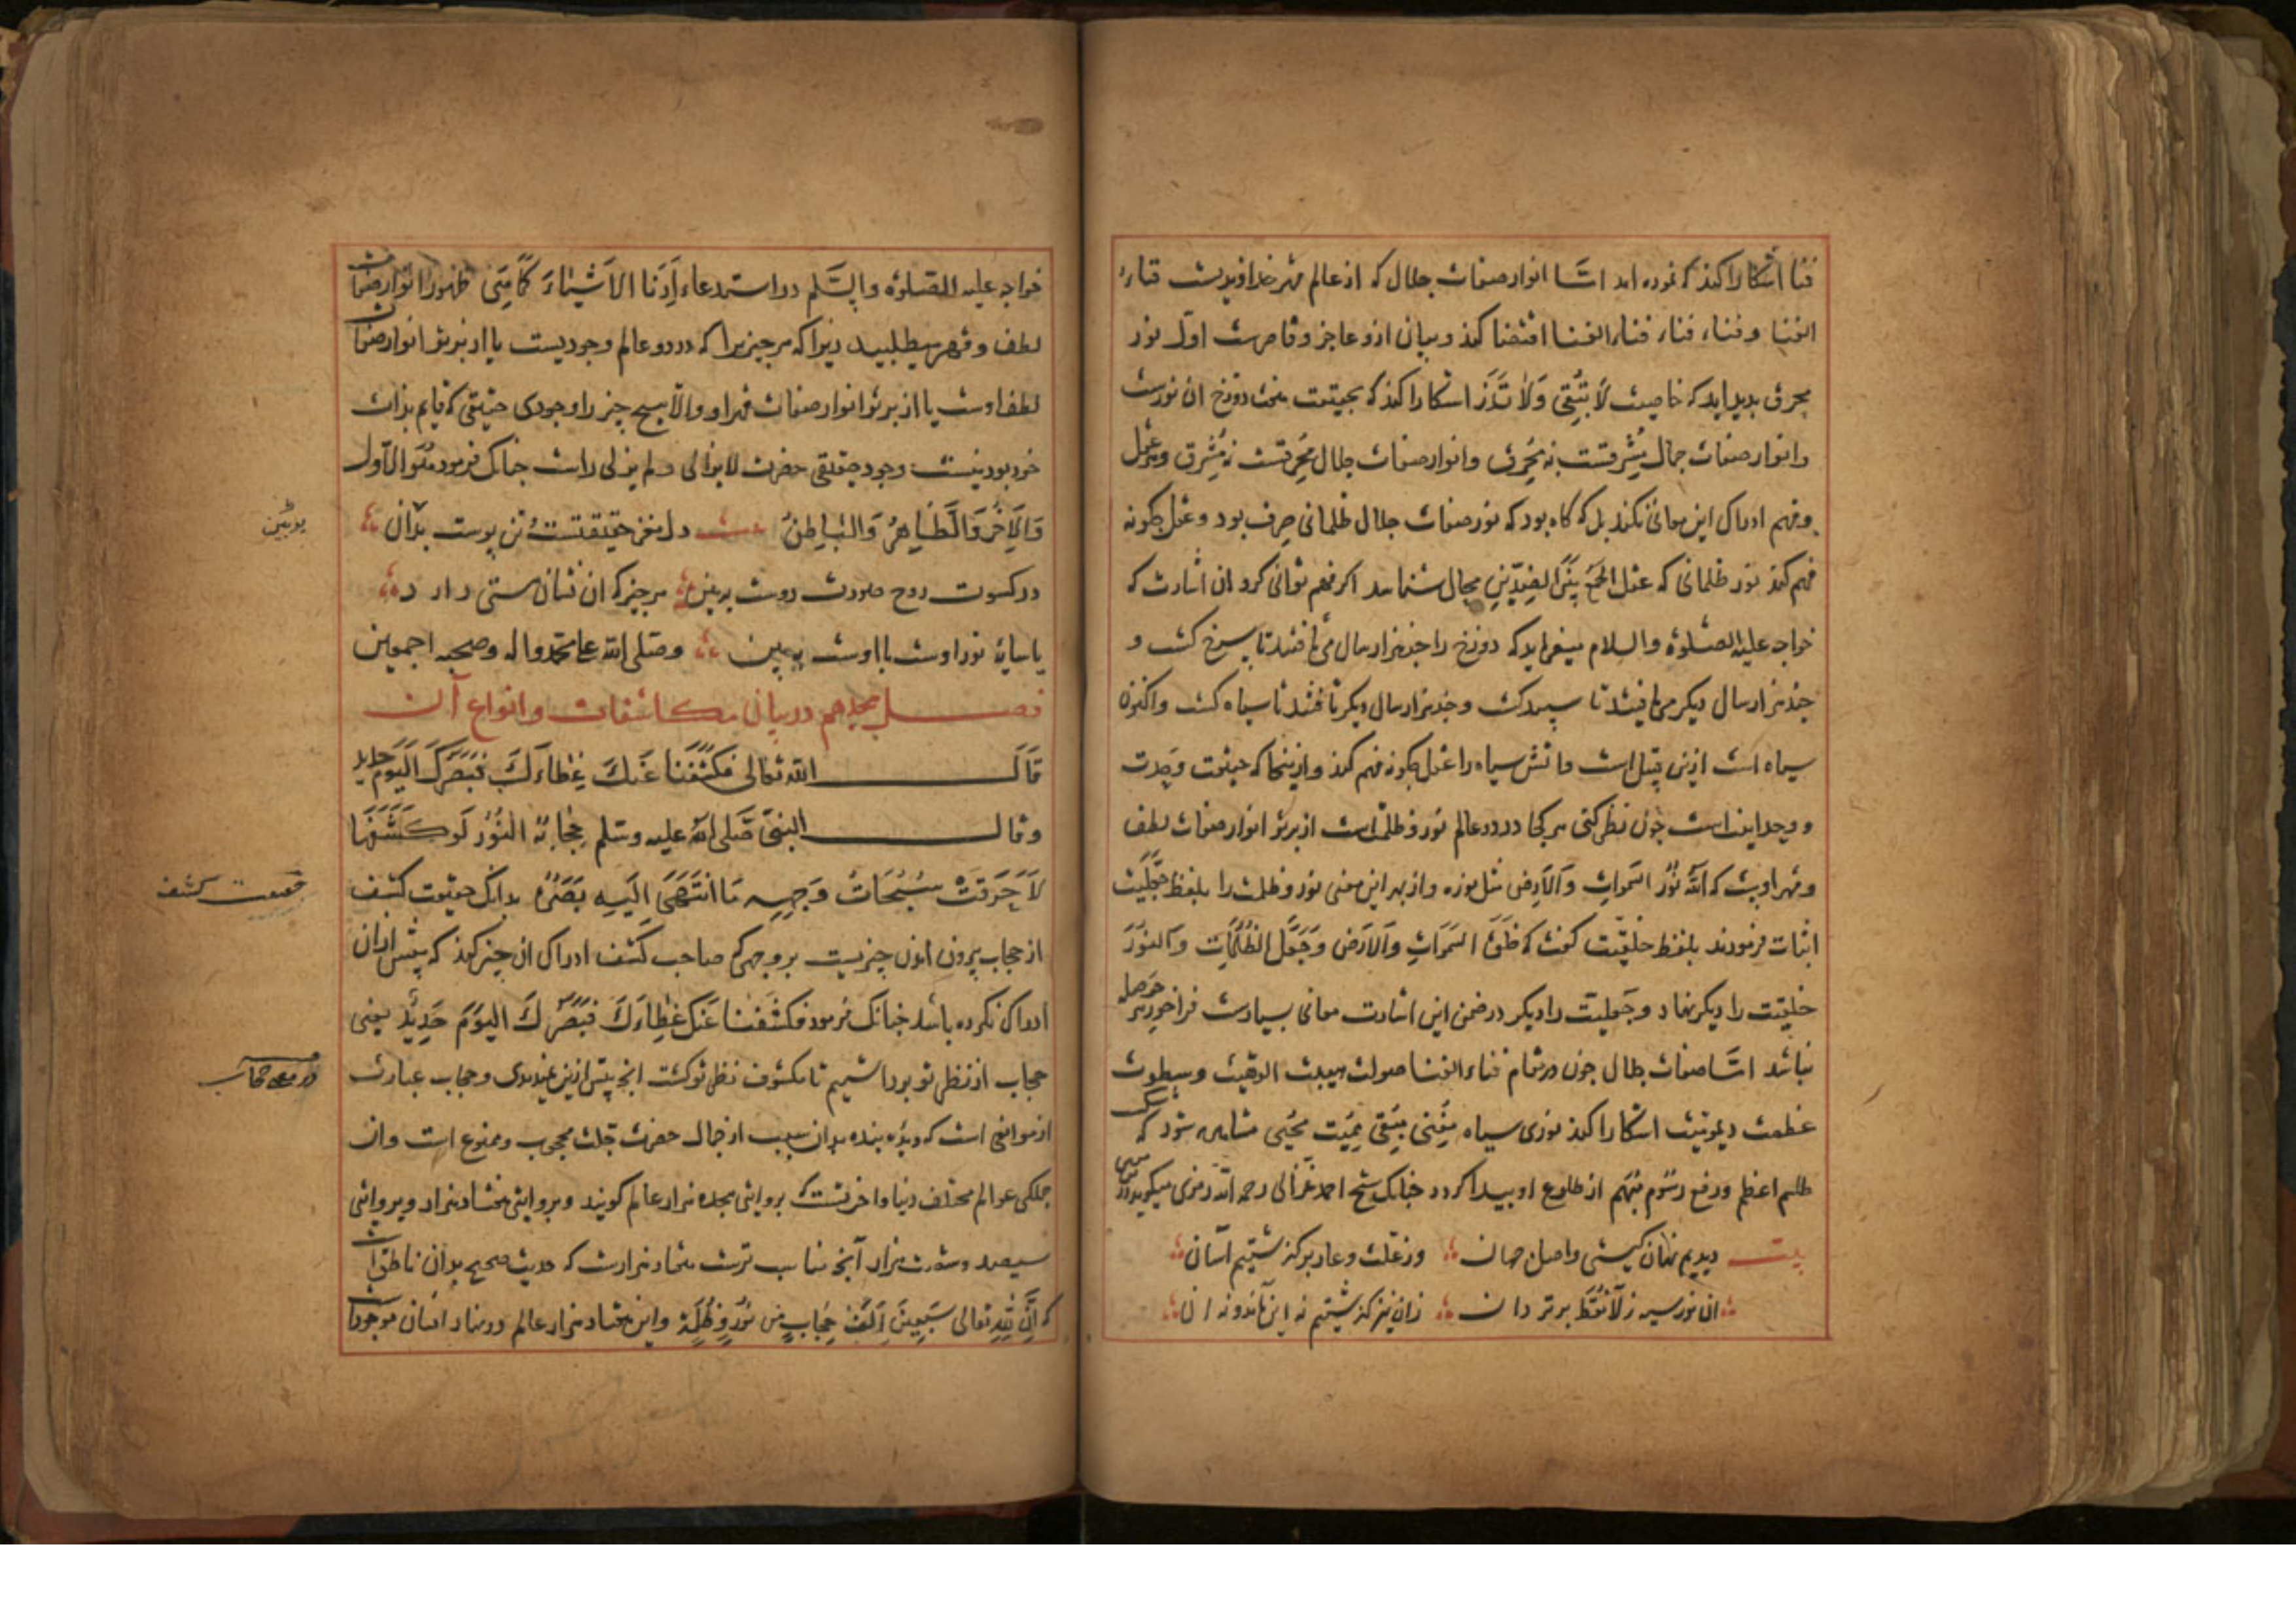 فنا اشکارا کند که نموده اند اما انوار صفات جلال که از عالم قهر خداوندیست فناء
الفنا و فناء فناء الفنا اقتضا کند و بیان ازو عاجز و قاصرست اول نور
محرق بدید اید که خاصیت لَا تُبْقِی وَلَا تَذَر اشکارا کند که بحقیقت هفت دوزخ ان نورست
و انوار صفات جمال مُشرقست نه مُحرق و انوار صفات جلال مُحرقست نه مُشرق و هر عقل
و فهم ادراک این معانی نکند بل که گاه بود که نور صفات جلال ظلمانی صِرف بود و عقل چکونه
فهم کند نور ظلمانی که عقل الجمع بین الضدین محال شناسد اکر فهم توانی کرد ان اشارت که
خواجه علیه الصلوة والسلام میفرماید که دوزخ را چند هزار سال می تافتند تا سرخ کشت و
چند هزار سال دیکر می تافتند تا سپید کشت و چند هزار سال دیکر تافتند تا سیاه کشت و اکنون
سیاه است ازین قبیل است و اتش سیاه را عقل چکونه فهم کند و از اینجا که حقیقت وحدت
و وحدانیت است چون نظر کنی هر کجا در دو عالم نور و ظلمت است از پرتو انوار صفات لطف
و قهر اوست که اَللهُ نُورُ السَّمَواتِ وَالْاَرْضِ مثل نوره و از بهر این معنی نور و ظلمت را بلفظ جَعَلیّت
اثبات فرمودند بلفظ خلقیّت کفت که خَلَقَ السَّمَواتِ وَالْاَرْضَ وَجَعَلَ الظُّلُمَاتِ وَالنُّورَ
خلقیّت را دیکر نهاد و جَعلیّت را دیکر در ضمن این اشارت معانی بسیارست فراخور هر حوصله
نباشد امّا صفات جلال چون در مقام فناء الفنا صولت هیبت الوهیت و سطوت
عظمت دیمومیت اشکارا کند نوری سیاه مُفنی مُبقی مُمیت مُحیی مشاهده شود که
طلسم اعظم و رفع رسوم مبهم از طلوع او بیدا کردد چنانک شیخ احمد غزالی رحمه الله رمزی میکوید
بیت دیدیم نهان کیتی و اصل جهان وز علت و عار برکذشتیم آسان
ان نور سیه ز لانُقَط برتر دان زان نیز کذشتیم نه این ماند و نه ان
خواجه علیه الصلوة والسلم در استدعاء اَرِنَا الاَشْیٰاءَ کَمَا هِیَ ظهور انوار صفات
لطف و قهر میطلبید زیرا که هر چیز را که در دو عالم وجودیست یا از پرتو انوار صفات
لطف اوست یا از پرتو انوار صفات قهر او والّا هیچ چیز را وجودی حقیقی که قایم بذات
خود بود نیست وجود حقیقی حضرت لا یزالی و لم یزلی راست چنانک فرمود هُوَ الْاَوَّل
وَالْآخِرُ وَالظَّاهِرُ وَالْبَاطِنُ دل مغز حقیقتست تن پوست بدان
در کسوت روح صورت دوست ببین هر چیز که ان نشان هستی دارد
یا سایۀ نور اوست یا اوست ببین وصلی الله علی محمد واله وصحبه اجمعین
فصل هجدهم در بیان مکاشفات و انواع آن
قَالَ الله تعالی فَکَشَفْنَا عَنْکَ غِطَاءَکَ فَبَصَرُکَ الْیَوْمَ حدید
وقال النبی صَلی الله علیه وسلم حِجَابُهُ النُّورُ لَوْ کَشَفَهَا
لَاَحْرَقَتْ سُبُحَاتُ وَجْهِهِ مَا انْتَهَی اِلَیْهِ بَصَرُهُ بدانک حقیقت کشف
از حجاب بیرون امدن چیزیست بر وجهی که صاحب کشف ادراک ان چیز کند که پیش ازان
ادراک نکرده باشد چنانک فرمود فَکَشَفْنَا عَنْکَ غِطَاءَکَ فَبَصَرُکَ الْیَوْمَ حَدِیدٌ یعنی
حجاب از نظر تو برداشتیم تا مکشوف نظر تو کشت انچ پیش ازین نمیدیدی و حجاب عبارت
از موانعی است که دیدۀ بنده بدان سبب از جمال حضرت جلت محجوب و ممنوع است و ان
جملکی عوالم مختلف دنیا و اخرتست که بروایتی هجده هزار عالم کویند و بروایتی هفتاد هزار و بروایتی
سیصد و شصت هزار آنچ مناسب ترست هفتاد هزارست که حدیث صحیح بدان ناطق است
که اِنَّ لِلهِ تعالی سَبْعِینَ اَلْفَ حِجَابٍ مِن نُورٍ وَظُلْمَةٍ و این هفتاد هزار عالم در نهاد انسان موجودست
ببین
حقیقت کشف
در معنی حجاب